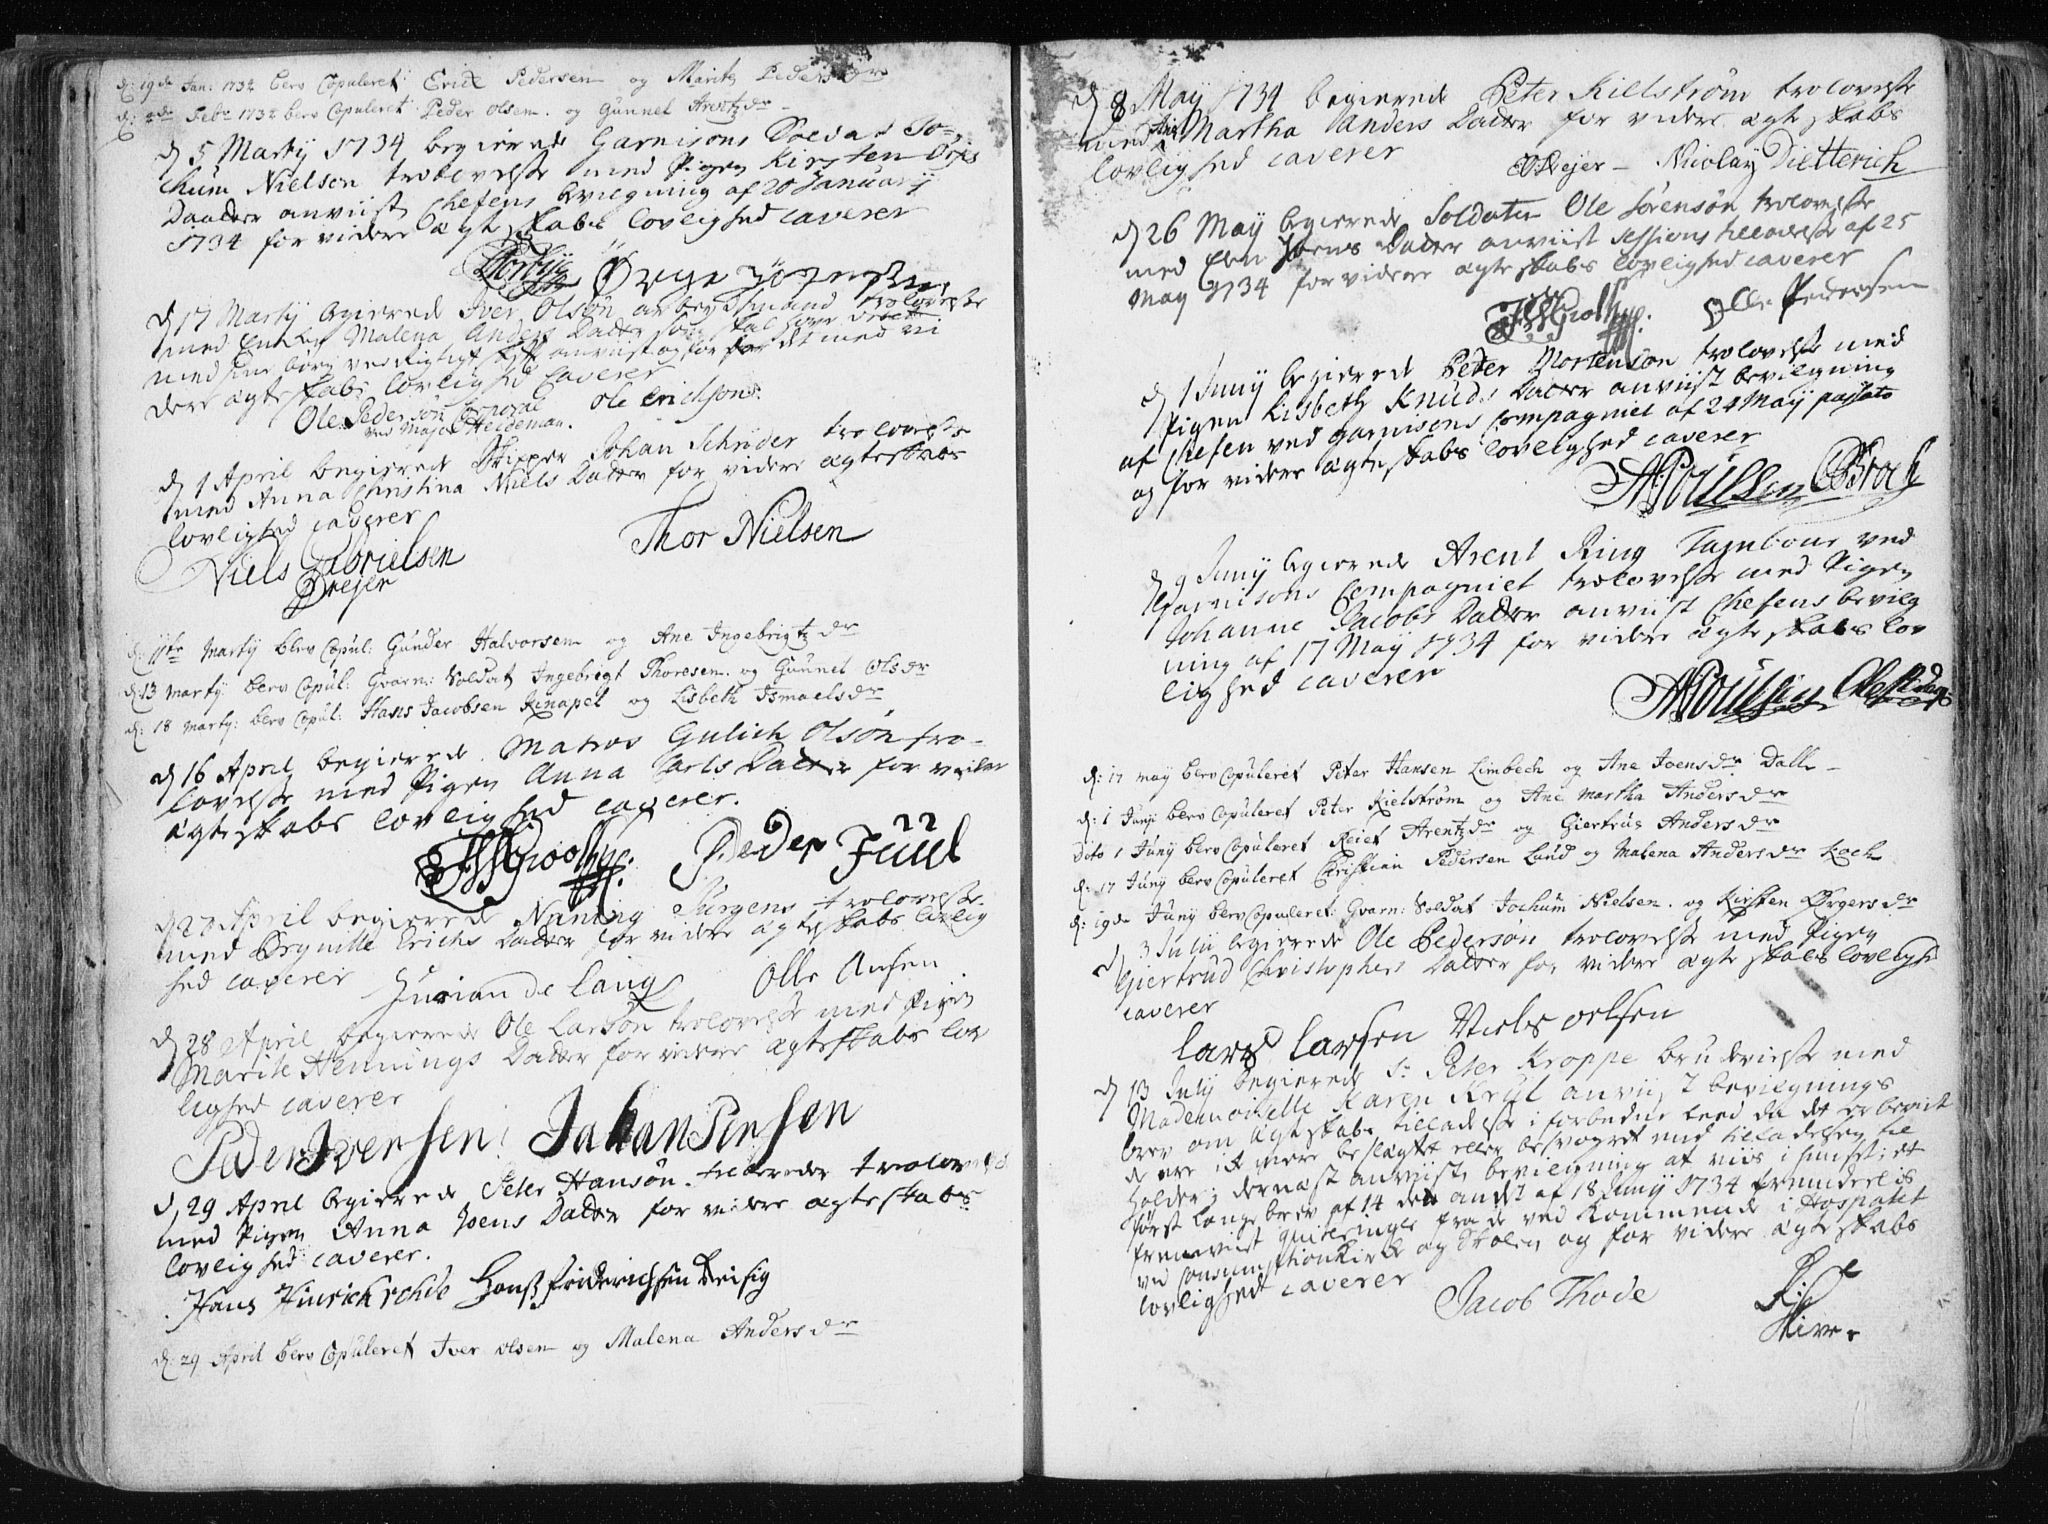 d: 19de Jan: 1734 blev Copuleret Erich Pedersen og Marite Pedersdr
d: 2de Febr 1734 blev Copuleret Peder Olsen og Gunnel Arentzdr
d 5 Martij 1734 begierede Garnisons Soldat Jo-
chum Nielsen trolovelse med Pigen Kirsten Ørjes
Daatter anviist Chefens bevilgning af 20 Januarij
1734 for videre ægteskabs lovlighed caverer
Ørge Jörgensen
d 17 Martij begierede Iver Olsøn arbeidsmand trolovelse
med Enken Malena Anders Datter som skal have
med sine børn rigtigt skifte anviist og for det med vi
dere ægteskabs lovlighed caverer
Ole Pedersøn Corporal Ole Erichsøn
ved Major Heideman.
d 1 April begierede Skipper Johan Schrider trolovelse
med Anna Christina Niels Datter for videre ægteskabs
lovlighed caverer
Niels Gabrielsen Thor Nielsen
Dreyer
d: 11te Martij blev Copul: Gunder Halvorsen og Ane Ingebrigtzdr
d: 13 Martij blev Copul: Gvarn: Soldat Ingebrigt Thoresen og Gunnel Olsdr
d: 18 Martij: blev Copul: Hans Jacobsen Knapel og Lisbeth Ismaelsdr
d 16 April begierede Matros Gulich Olsøn tro-
lovelse med Pigen Anna Carls Datter for videre
ægteskabs lovlighed caverer.
Peder Juul
April begierede Nuning Jurgens trolovelse
med Ørgnille Erichs Datter for videre ægteskabs lovlig
hed caverer Jurian de Lang Olle Ansen
d 28 April begierede Ole Larsøn trolovelse med Pigen
Marite Hennings Datter for videre ægteskabs lov
lighed caverer
Peder Iversen Johan Pensen
d, 29 April begierede Peter Hansøn trolovelse
med Pigen Anna Joens Datter for videre ægteskabs
lovlighed caverer.
Hans Hinrich Hans friderichsen Leisig
d: 29 April blev Copuleret Iver Olsen og Malena Andersdr
d, 8 May 1734 begierede Peter Killstrøm trolovelse
med Ane Martha Anders Datter for videre ægteskabs
lovlighed caverer
Nicolay Dietterich
d 26 May begierede Soldaten Ole Sörensøn trolovelse
med Elen Joens Datter anviist Sessions tilladelse af 25
May 1734 for videre ægteskabs lovlighed caverer
Olle Pedersen
d 1 Junij begierede Peter Mortensøn trolovelse med
Pigen Lisbeth Knuds Datter anviist bevilgning
af Chefen ved garnisons Compagniet af 24 May passato
og for videre ægteskabs lovlighed caverer
APoulsen CBroch
d 9 Junij begierede Arent Ring Tambour ved
Garnisons Compagniet trolovelse med Pigen
Johanne Jacobs Datter anviist Chefens bevilg
ning af 17 May 1734 for videre ægteskabs lov
lighed caverer
APoulsen
d: 17 may blev Copuleret Peter Hansen Limbech og Ane Joensdr Dalle
d: 1 Junij blev Copuleret Peter Kielstrøm og Ane Martha Andersdr
Dito 1 Junij blev Copuleret Reiet Arentzdr og Giertrud Andersdr
d: 17 Junij blev Copuleret Christian Pedersen Lund og Malena Andersdr Koch
d: 19de Junij blev Copuleret: Gvarn: Soldat Jochum Nielsen og Kirsten Ørgersdr
d 3 Julii begierede Ole Pedersøn trolovelse med Pigen
Giertrud Christophers Datter for videre ægteskabs lovlighed
caverer
Lars Larsen Niels Oelsen
d 13 July begierede Sr Peter Kroppe bruderielse med
Mademoiselle Karen Krul anviist bevilgnings
brev om ægteskabs tilladelse i forbudne leed da det er bevist
de ere ik mere beslægtet eller besvogret end tilladelsen til
holder; dernæst anviiste bevilgning at viis i huuset; et
først lange brev af 14 den andet af 18 Junij 1734
fremviist qvitteringer fra de ved kommende i Hospitalet
ved Consumptionkirke og Skolen og for videre ægteskabs
lovlighed caverer
Jacob Thode